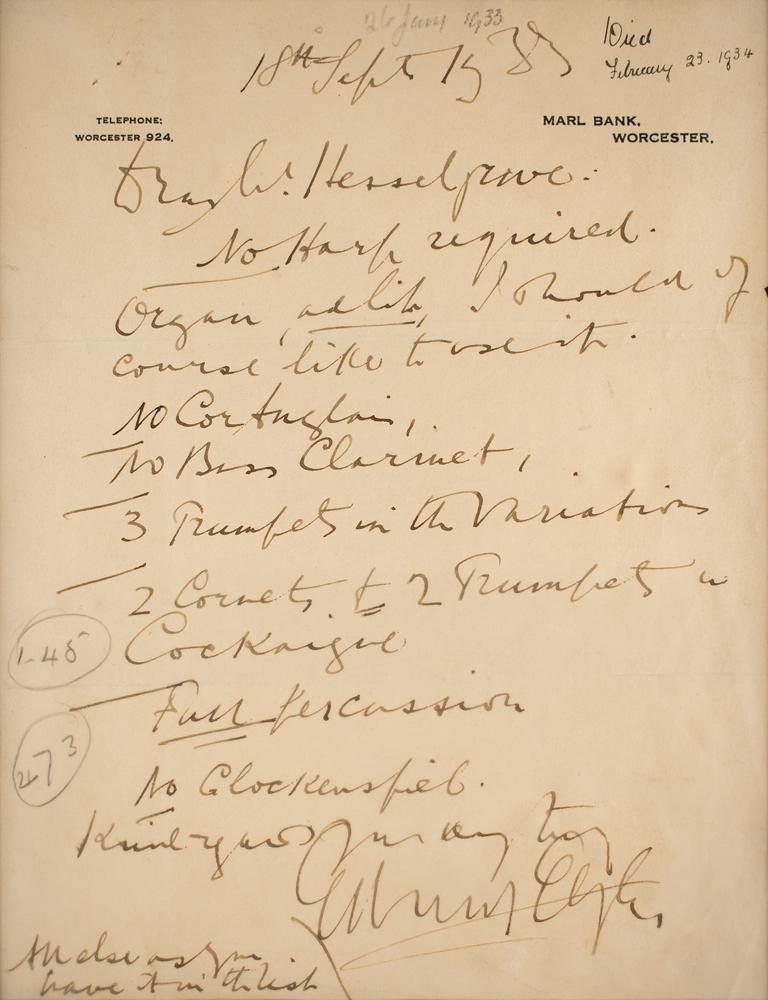 26 Jany 1933
18th Sept 1933
Died
February 23. 1934
TELEPHONE:
WORCESTER 924.
MARL BANK,
WORCESTER.
Dear Mr. Hesselgrove:
No Harp required.
Organ, ad lib, I should of
course like to use it.
No Cor Anglais,
No Bass Clarinet,
3 Trumpets in the Variations
2 Cornets & 2 Trumpets in
Cockaigne
1-45
Full percussion
473
No Glockenspiel.
Kind regards
Edward Elgar
All else as you
have it in the list